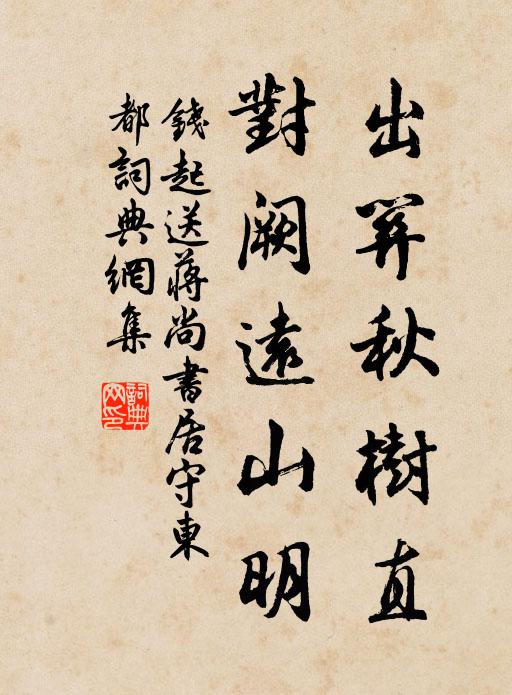 出關秋樹直
對闕遠山明
錢起送蔣尚書居守東
都詞典網集
詞典网印